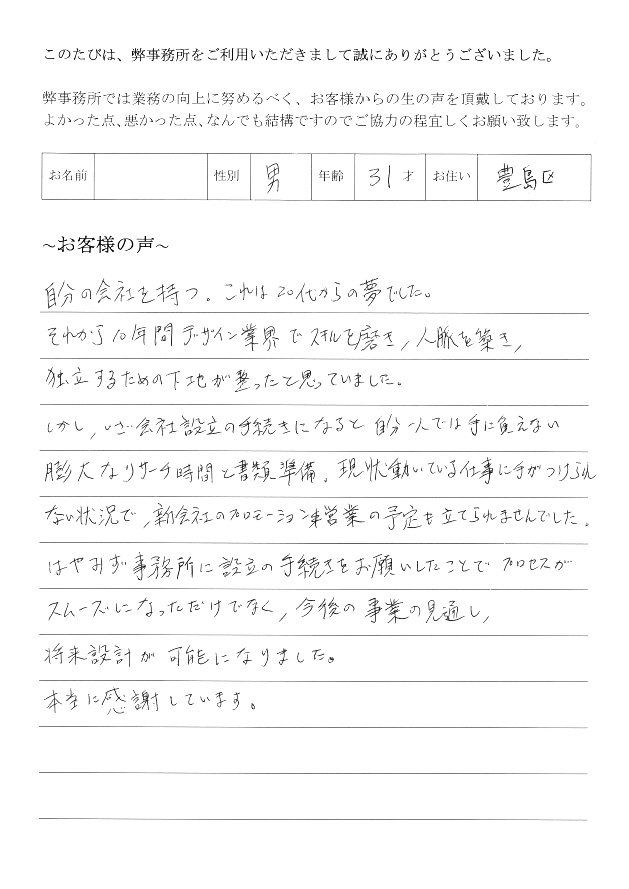 このたびは、弊事務所をご利用いただきまして誠にありがとうございました。
弊事務所では業務の向上に努めるべく、お客様からの生の声を頂戴しております。
よかった点、悪かった点、なんでも結構ですのでご協力の程宜しくお願い致します。
お名前 性別 男 年齢 31才 お住い 豊島区
~お客様の声~
自分の会社を持つ。これは20代からの夢でした。
それから10年間デザイン業界でスキルを磨き,人脈を築き,
独立するための下地が整ったと思っていました。
しかし,いざ会社設立の手続きになると自分一人では手に負えない
膨大なリサーチ時間と書類準備。現状動いている仕事に手がつけられ
ない状況で,新会社のプロモーションや営業の予定も立てられませんでした。
はやみず事務所に設立の手続きをお願いしたことでプロセスが
スムーズになっただけでなく,今後の事業の見通し,
将来設計が可能になりました。
本当に感謝しています。